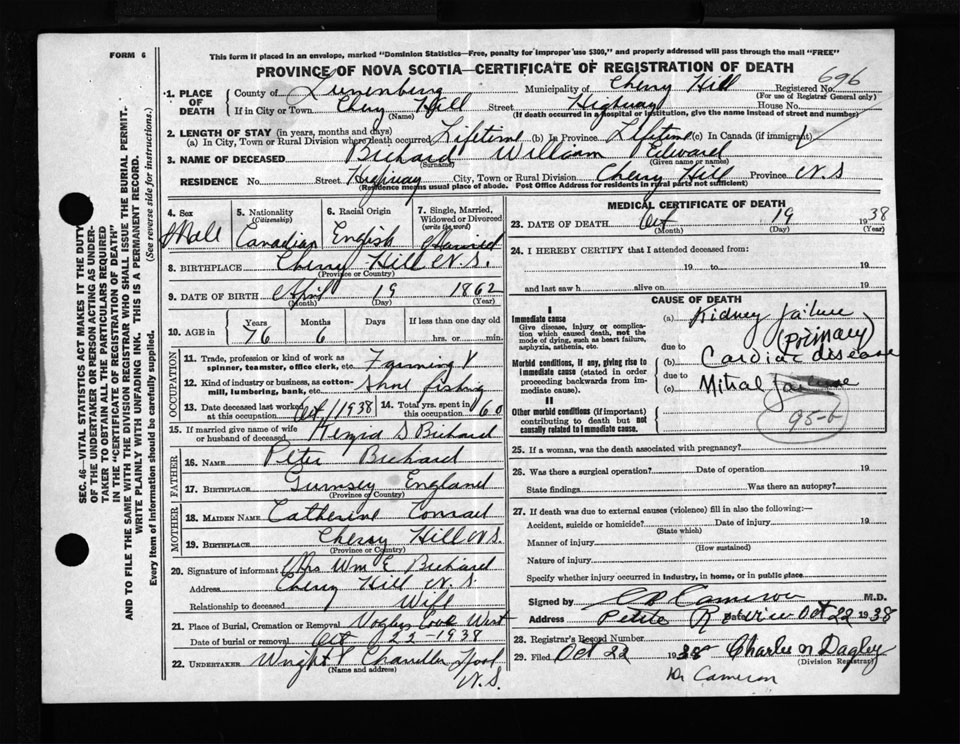 FORM 6
This form if placed in an envelope, marked "Dominion Statistics—Free, penalty for improper use $300," and properly addressed will pass through the mail "FREE"
PROVINCE OF NOVA SCOTIA—CERTIFICATE OF REGISTRATION OF DEATH
696
1. PLACE OF DEATH
County of Lunenburg Municipality of Cherry Hill Registered No.
(For use of Registrar General only)
If in City or Town Chery Hill Street Highway House No.
(Name) (If death occurred in a hospital or institution, give name instead of street and number)
2. LENGTH OF STAY (in years, months and days)
(a) In City, Town or Rural Division where death occurred Lifetime (b) In Province Lifetime (c) In Canada (if immigrant)
3. NAME OF DECEASED Bichard William Edward
(Surname) (Given name or names)
RESIDENCE No. Street Highway City, Town or Rural Division Cherry Hill Province N S
(Residence means usual place of abode. Post Office Address for residents in rural parts not sufficient)
4. Sex Male
5. Nationality (Citizenship) Canadian
6. Racial Origin English
7. Single, Married, Widowed or Divorced (write the word) Married
8. BIRTHPLACE Cherry Hill N.S.
(Province or Country)
9. DATE OF BIRTH April 19 1862
(Month) (Day) (Year)
10. AGE in Years 76 Months 6 Days If less than one day old hrs. or min.
OCCUPATION
11. Trade, profession or kind of work as spinner, teamster, office clerk, etc. Farming
12. Kind of industry or business, as cotton-mill, lumbering, bank, etc. Shore fishing
13. Date deceased last worked at this occupation Oct 1 1938
14. Total yrs. spent in this occupation 60
15. If married give name of wife or husband of deceased S Bichard
FATHER
16. NAME Peter Bichard
17. BIRTHPLACE Gurnsey England
(Province or Country)
MOTHER
18. MAIDEN NAME Catherine Conrad
19. BIRTHPLACE Cherry Hill N.S.
(Province or Country)
20. Signature of informant Mrs Wm E Bichard
Address Cherry Hill N.S.
Relationship to deceased Wife
21. Place of Burial, Cremation or Removal Voglers Cove West
Date of burial or removal Oct 22-1938
22. UNDERTAKER Wright Chandler N.S.
(Name and address)
MEDICAL CERTIFICATE OF DEATH
23. DATE OF DEATH Oct 19 1938
(Month) (Day) (Year)
24. I HEREBY CERTIFY that I attended deceased from:
19 to 19
and last saw h alive on 19
CAUSE OF DEATH
I
Immediate cause (a) Kidney failure
Give disease, injury or complication which caused death, not the mode of dying, such as heart failure, asphyxia, asthenia, etc.
(Primary)
due to
Morbid conditions, if any, giving rise to immediate cause (stated in order proceeding backwards from immediate cause). (b) Cardiac disease
due to
(c) Mitral failure
II
Other morbid conditions (if important) contributing to death but not causally related to immediate cause.
95-b
25. If a woman, was the death associated with pregnancy?
26. Was there a surgical operation? Date of operation 19
State findings Was there an autopsy?
27. If death was due to external causes (violence) fill in also the following:—
Accident, suicide or homicide? Date of injury 19
(State which)
Manner of injury
(How sustained)
Nature of injury
Specify whether injury occurred in industry, in home, or in public place
Signed by Cameron M.D.
Address Petite Riviere Date Oct 22 1938
28. Registrar's Record Number
29. Filed Oct 22 1938 Charlie M Dagley
(Division Registrar)
Dr Cameron
SEC. 46—VITAL STATISTICS ACT MAKES IT THE DUTY
OF THE UNDERTAKER OR PERSON ACTING AS UNDER-
TAKER TO OBTAIN ALL THE PARTICULARS REQUIRED
IN THE "CERTIFICATE OF REGISTRATION OF DEATH"
AND TO FILE THE SAME WITH THE DIVISION REGISTRAR WHO SHALL ISSUE THE BURIAL PERMIT.
WRITE PLAINLY WITH UNFADING INK. THIS IS A PERMANENT RECORD.
Every item of information should be carefully supplied. (See reverse side for instructions.)